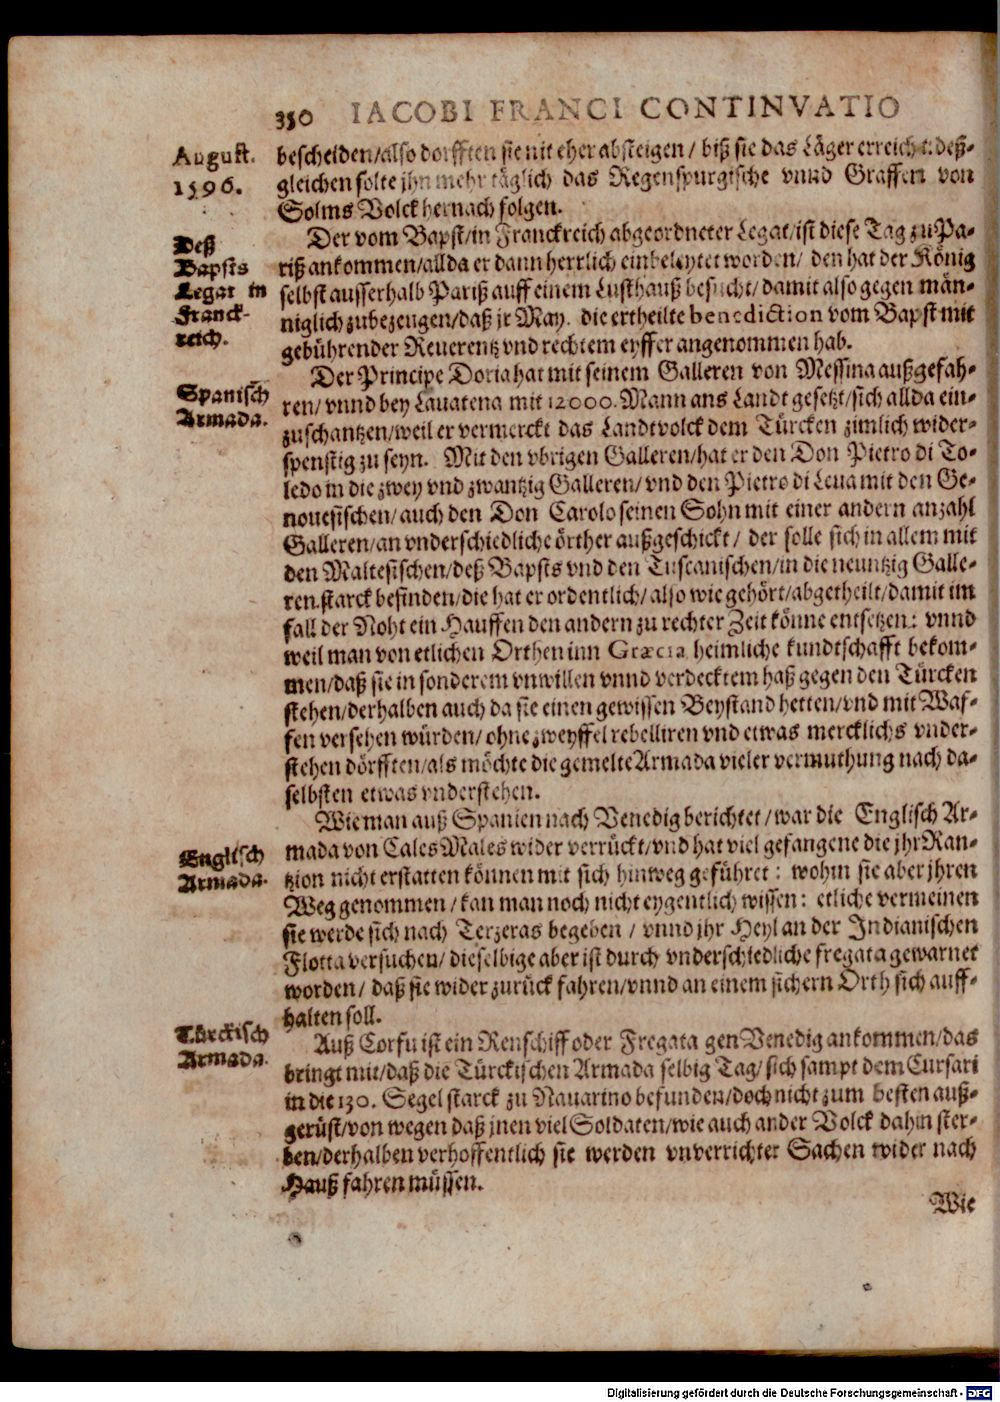 350 IACOBI FRANCI CONTINVATIO
August.
1596.
bescheiden/also dorfften sie nit eher absteigen / biß sie das Läger erreicht: deß-
gleichen solte jhn mehr täglich das Regenspurgische vnnd Graffen von
Solms Volck hernach folgen.
Deß
Bapsts
Legat in
Franck-
reich.
Der vom Bapst/in Franckreich abgeordneter Legat/ist diese Tag zu Pa-
riß ankommen/allda er dann herrlich einbeleytet worden/ den hat der König
selbst ausserhalb Pariß auff einem Lusthauß besucht/damit also gegen män-
niglich zubezeugen/daß jr May. die ertheilte benediction vom Bapst mit
gebührender Reuerentz vnd rechtem eyffer angenommen hab.
Spanisch
Armada.
Der Principe Doria hat mit seinem Galleren von Messina außgefah-
ren/ vnnd bey Lauatena mit 12000. Mann ans Landt gesetzt/sich allda ein-
zuschantzen/weil er vermerckt das Landtvolck dem Türcken zimlich wider-
spenstig zu seyn. Mit den vbrigen Galleren/hat er den Don Pietro di To-
ledo in die zwey vnd zwantzig Galleren/ vnd den Pietro di Leua mit den Ge-
nouesischen/auch den Don Carolo seinen Sohn mit einer andern anzahl
Galleren/an vnderschiedliche örther außgeschickt/ der solle sich in allem mit
den Maltesischen/deß Bapsts vnd den Tuscanischen/in die neuntzig Galle-
ren starck befinden/die hat er ordentlich/also wie gehört/abgetheilt/damit im
fall der Noht ein Hauffen den andern zu rechter Zeit könne entsetzen: vnnd
weil man von etlichen Orthen inn Græcia heimliche kundtschafft bekom-
men/daß sie in sonderem vnwillen vnnd verdecktem haß gegen den Türcken
stehen/derhalben auch da sie einen gewissen Beystand hetten/vnd mit Waf-
fen versehen würden/ ohne zweyffel rebelliren vnd etwas mercklichs vnder-
stehen dörfften/als möchte die gemelte Armada vieler vermuthung nach da-
selbsten etwas vnderstehen.
Englisch
Armada.
Wie man auß Spanien nach Venedig berichtet/war die Englisch Ar-
mada von Cales Males wider verrückt/vnd hat viel gefangene die jhr Ran-
tzion nicht erstatten können mit sich hinweg geführet: wohin sie aber jhren
Weg genommen/kan man noch nicht eygentlich wissen: etliche vermeinen
sie werde sich nach Terzeras begeben / vnnd jhr Heyl an der Indianischen
Flotta versuchen/ dieselbige aber ist durch vnderschiedliche fregata gewarnet
worden/ daß sie wider zurück fahren/vnnd an einem sichern Orth sich auff-
halten soll.
Türckisch
Armada.
Auß Corfu ist ein Renschiff oder Fregata gen Venedig ankommen/das
bringt mit/daß die Türckischen Armada selbig Tag/sich sampt dem Cursari
in die 130. Segel starck zu Nauarino befunden/doch nicht zum besten auß-
gerüst/von wegen daß jnen viel Soldaten/wie auch ander Volck dahin ster-
ben/derhalben verhoffentlich sie werden vnverrichter Sachen wider nach
Hauß fahren müssen.
Wie
Digitalisierung gefördert durch die Deutsche Forschungsgemeinschaft - DFG